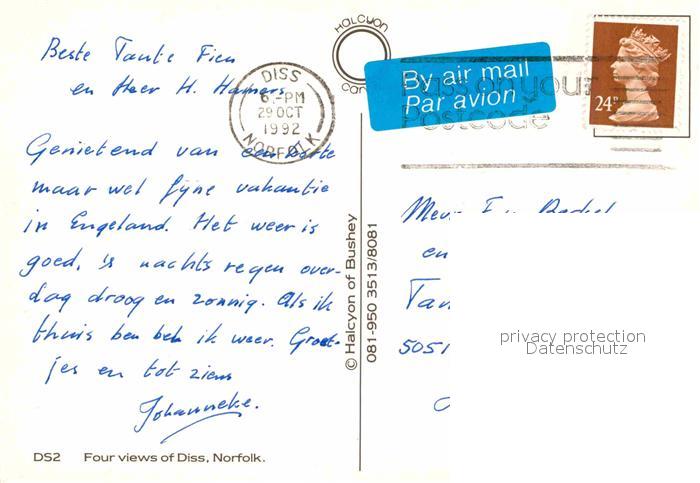 Beste Tante Fien
en Heer H. Hamers
Genietend van een korte
maar wel fijne vakantie
in Engeland. Het weer is
goed, 's nachts regen over-
dag droog en zonnig. Als ik
thuis ben bel ik weer. Groet-
jes en tot ziens
Johanneke.
DS2 Four views of Diss, Norfolk.
HALCYON
DISS
6.-PM
29 OCT
1992
NORFOLK
© Halcyon of Bushey
081-950 3513/8081
By air mail
Par avion
Pass on your
Postcode
24P
en
Tan
5051
privacy protection
Datenschutz